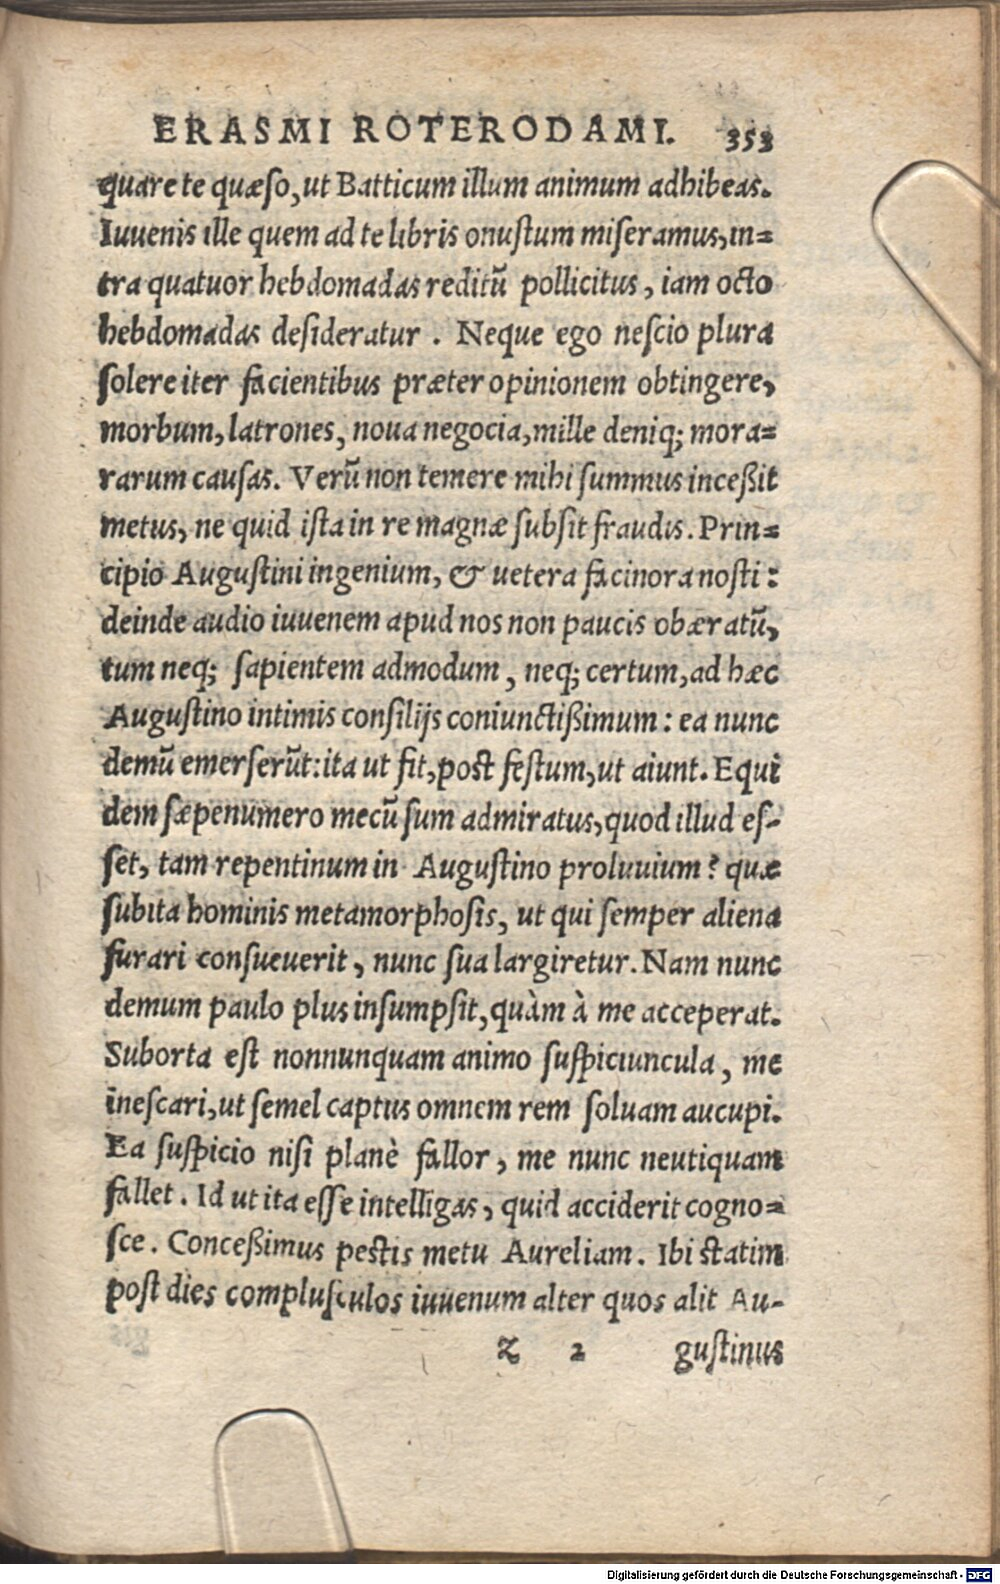 ERASMI ROTERODAMI. 353
quare te quæso, ut Batticum illum animum adhibeas.
Iuuenis ille quem ad te libris onustum miseramus, in=
tra quatuor hebdomadas reditũ pollicitus, iam octo
hebdomadas desideratur. Neque ego nescio plura
solere iter facientibus præter opinionem obtingere,
morbum, latrones, noua negocia, mille deniq; mora=
rarum causas. Verũ non temere mihi summus inceßit
metus, ne quid ista in re magnæ subsit fraudis. Prin=
cipio Augustini ingenium, & uetera facinora nosti:
deinde audio iuuenem apud nos non paucis obæratũ,
tum neq; sapientem admodum, neq; certum, ad hæc
Augustino intimis consilijs coniunctißimum: ea nunc
demũ emerserũt: ita ut fit, post festum, ut aiunt. Equi
dem sæpenumero mecũ sum admiratus, quod illud es-
set, tam repentinum in Augustino proluuium? quæ
subita hominis metamorphosis, ut qui semper aliena
furari consueuerit, nunc sua largiretur. Nam nunc
demum paulo plus insumpsit, quàm à me acceperat.
Suborta est nonnunquam animo suspiciuncula, me
inescari, ut semel captus omnem rem soluam aucupi.
Ea suspicio nisi planè fallor, me nunc neutiquam
fallet. Id ut ita esse intelligas, quid acciderit cogno=
sce. Conceßimus pestis metu Aureliam. Ibi statim
post dies complusculos iuuenum alter quos alit Au-
Z 2 gustinus
Digitalisierung gefördert durch die Deutsche Forschungsgemeinschaft - DFG